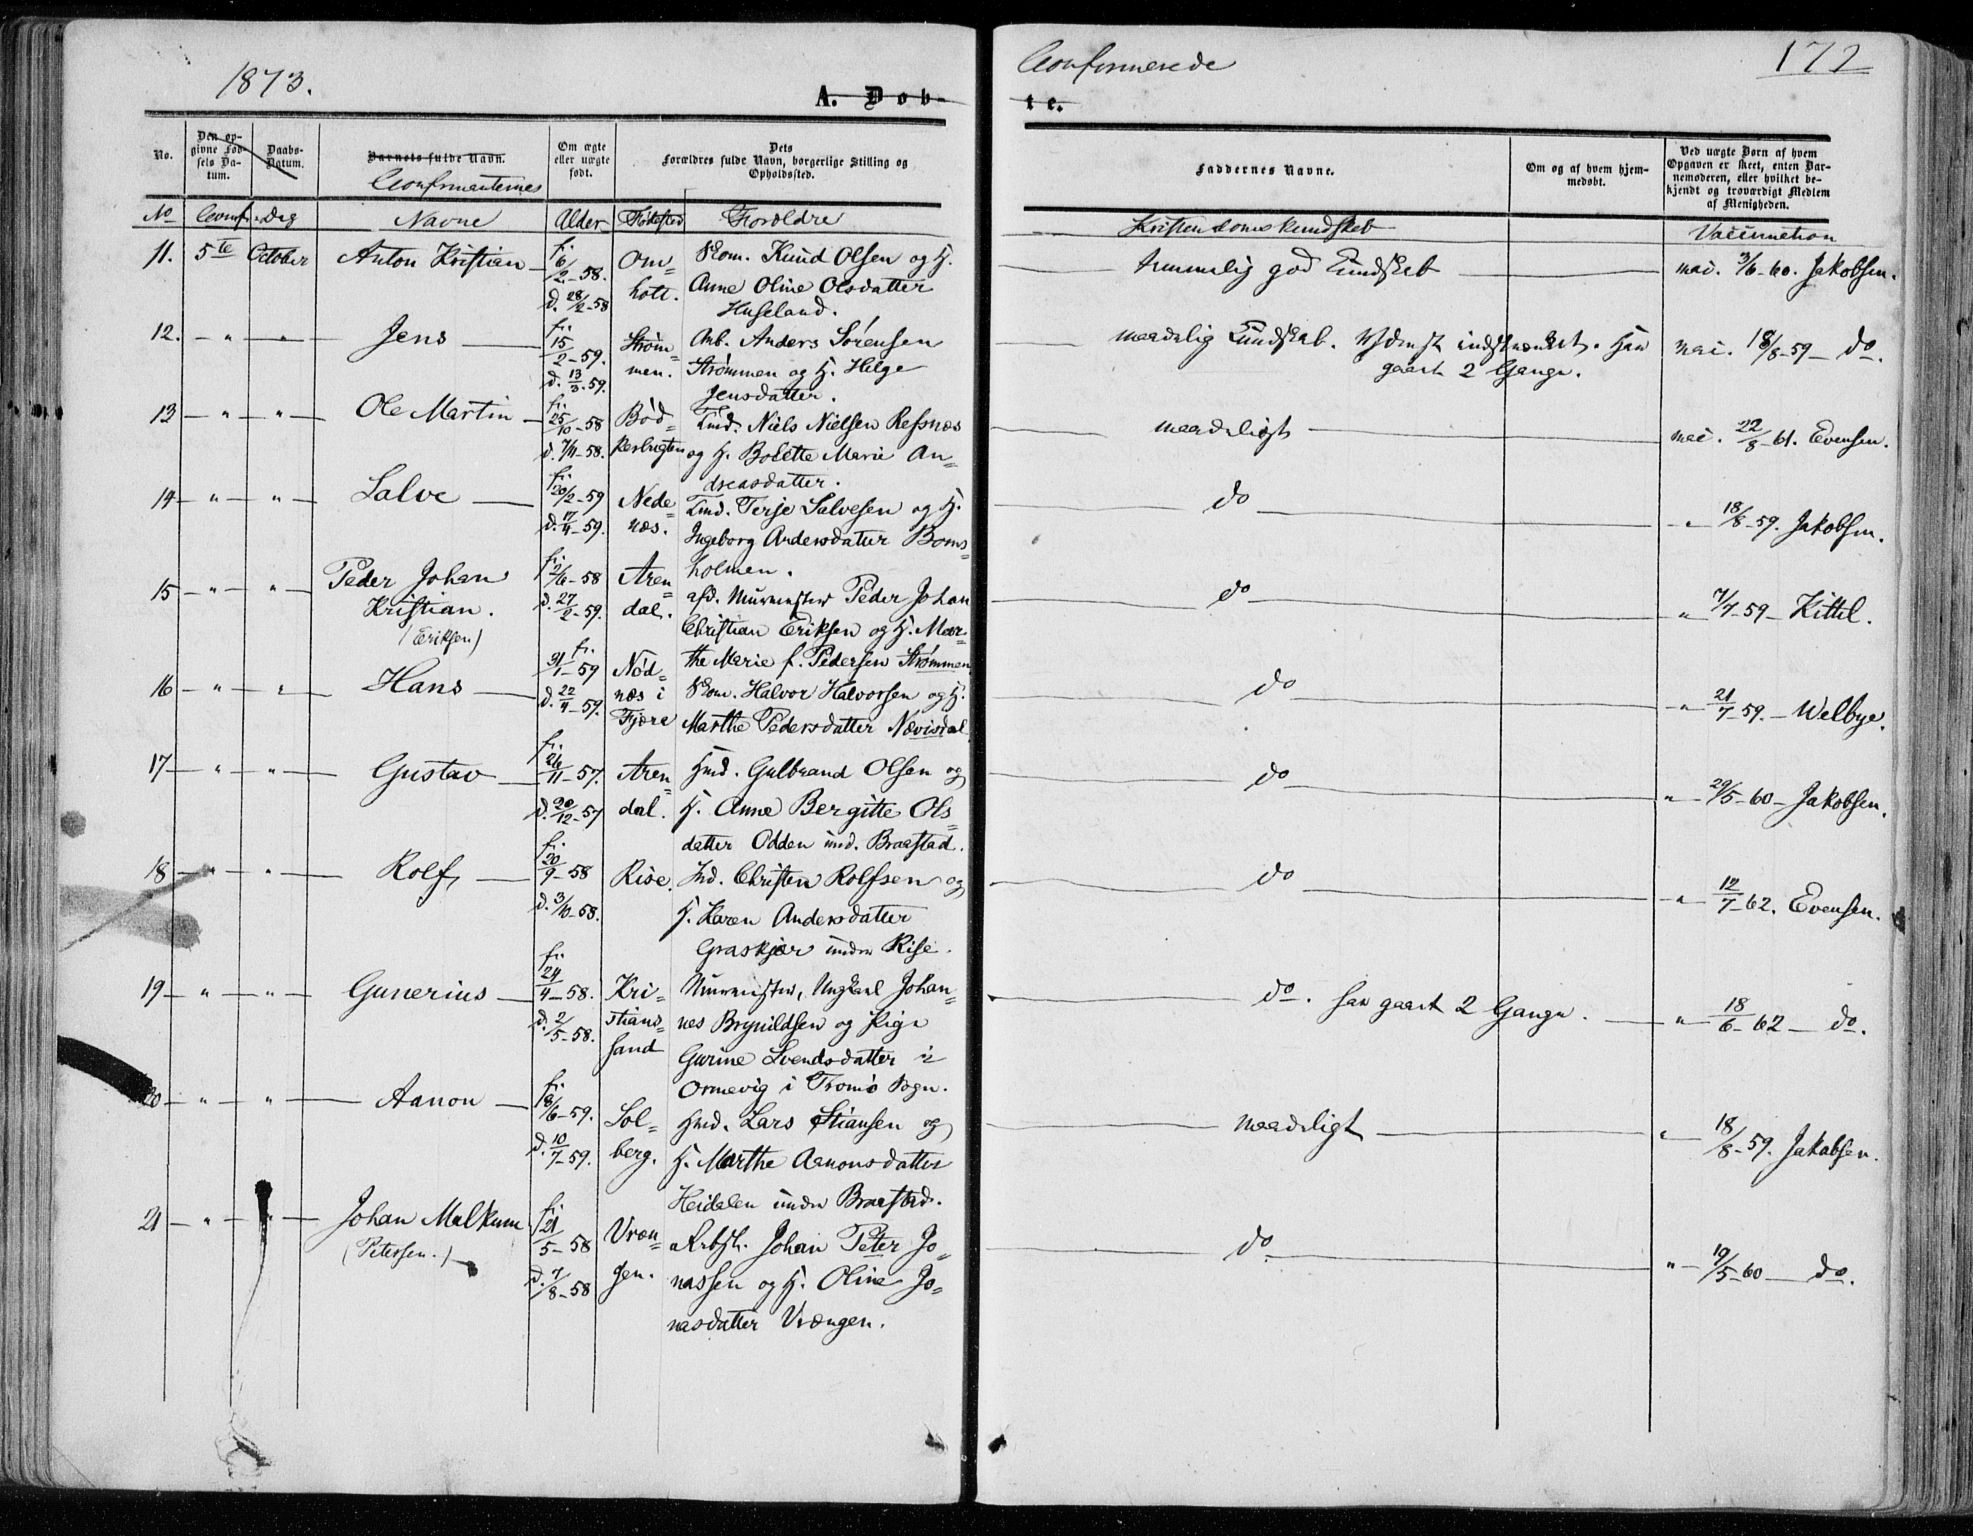 1873.
Confirmerede
172
A. Døb-
te.
No.
Den op-
givne Fød-
sels Da-
tum.
Daabs-
Datum.
Barnets fulde Navn.
Confirmanternes
Om ægte
eller uægte
født.
Dets
Forældres fulde Navn, borgerlige Stilling og
Opholdssted.
Faddernes Navne.
Om og af hvem hjem-
medøbt.
Ved uægte Børn af hvem
Opgaven er skeet, enten Bar-
nemoderen, eller hvilket be-
kjendt og troværdigt Medlem
af Menigheden.
No Confir. Dag Navne Alder Fødested Forældre Kristendomskundskab Vaccination
11. 5te October Anton Kristian
f. 6/2-58.
d. 28/2-58
Om-
holt.
Knud Olsen og H.
Anne Oline Olsdatter
Huseland.
temmelig god Kundskab
vac. 3/6-60. Jakobsen.
12. - " - " - Jens
f. 15/2-59.
d. 13/3-59.
Strøm-
men.
Arb. Anders Sørensen
Strømmen og H. Helge
Jensdatter.
maadelig Kundskab. Yderst indskrænket. Har
gaaet 2 Gange.
vac. 18/8-59 - do.
13 - " - " - Ole Martin
f. 25/10-58
d. 7/11-58.
Bød-
kerbugten
Niels Nielsen Refsnæs
og H. Bolette Marie An-
dreasdatter.
maadeligt
vac. 22/8-61. Evensen.
14 - " - " - Salve
f. 20/2-59
d. 17/4-59.
Nede-
næs.
Terje Salvesen og H.
Ingeborg Andersdatter Boms-
holmen.
do
" 18/8-59. Jakobsen.
15 - " - " - Peder Johan
Kristian.
(Eriksen)
f. 2/6-58
d. 27/2-59.
Aren-
dal.
afd. Murmester Peder Johan
Christian Eriksen og H. Mar-
the Marie f. Pedersen Strømmen
do
" 7/7-59 - Kittel.
16 - " - " - Hans
f. 31/1-59
d. 22/4-59.
Nød-
næs i
Fjære
Halvor Halvorsen og H.
Marthe Pedersdatter Nævisdal
do
" 21/7-59. - Welbye.
17 - " - " - Gustav
f. 26/11-57.
d. 20/12-57
Aren-
dal.
Hmd. Gulbrand Olsen og
H. Anne Bergitte Ols-
datter Odden und. Braastad.
do
" 29/5-60 - Jakobsen.
18 - " - " - Rolf
f. 20/9-58
d. 3/10-58.
Rise.
Ind. Christen Rolfsen og
H. Karen Andersdatter
Graskjær under Rise.
do
" 12/7-62. Evensen.
19 - " - " - Gunerius
f. 24/4-58.
d. 2/5-58.
Kri-
stians-
sand
Murmester, Ungkarl Johan-
nes Brynildsen og Pige
Gurine Svendsdatter i
Ormevig i Tromø Sogn.
do. har gaaet 2 Gange.
" 18/6-62 - do.
20 - " - " - Aanon
f. 18/6-59.
d. 10/7-59.
Sol-
berg.
Hmd. Lars Stiansen og
H. Marthe Aanonsdatter
Heidalen under Braastad.
maadeligt
" 18/8-59. Jakobsen.
21 - " - " - Johan Malkum
(Petersen.)
f. 21/5-58
d. 7/8-58
Vræn-
gen.
Arbsk. Johan Peter Jo-
nassen og H. Oline Jo-
nasdatter Vrængen.
do
" 19/5-60 - do.